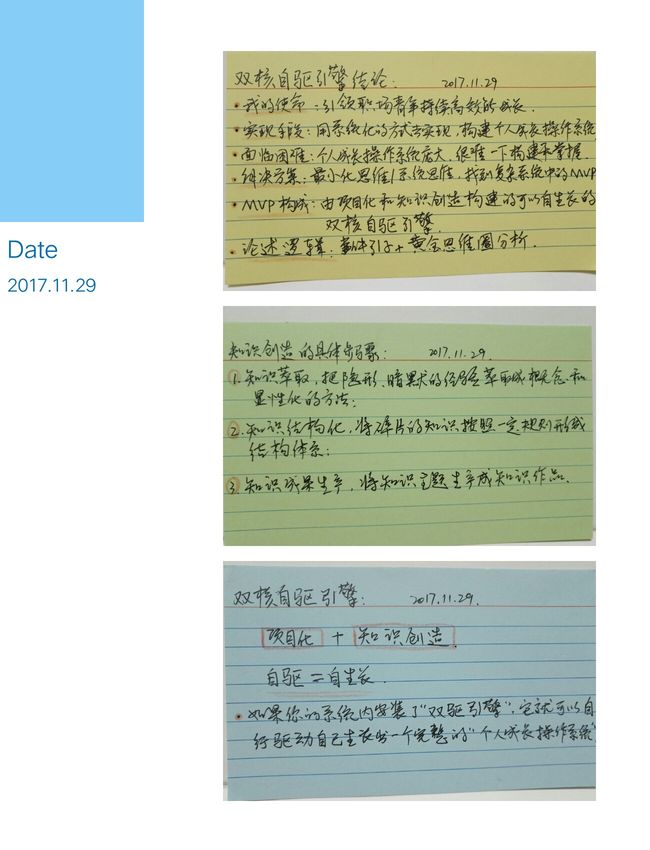 Date
2017.11.29
双核自驱引擎结论： 2017.11.29
• 我的使命：引领职场青年持续高效的成长.
• 实现手段：用系统化的方式去实现，构建个人成长操作系统
• 面临困难：个人成长操作系统庞大，很难一下构建和掌握.
• 解决方案：最小化思维/系统思维，找到复杂系统中的MVP
• MVP构成：由项目化和知识创造构建的可以自生长的
双核自驱引擎.
• 论述逻辑：引子+黄金思维圈分析.
知识创造的具体步骤： 2017.11.29.
1. 知识萃取，把隐形、暗默的经验萃取成概念和
显性化的方法；
2. 知识结构化，将碎片的知识按照一定规则形成
结构体系；
3. 知识成果生产，将知识主题生产成知识作品.
双核自驱引擎： 2017.11.29.
项目化 + 知识创造.
自驱=自生长.
• 如果你的系统内安装了“双驱引擎”，它就可以自
行驱动自己生长出一个完整的“个人成长操作系统”